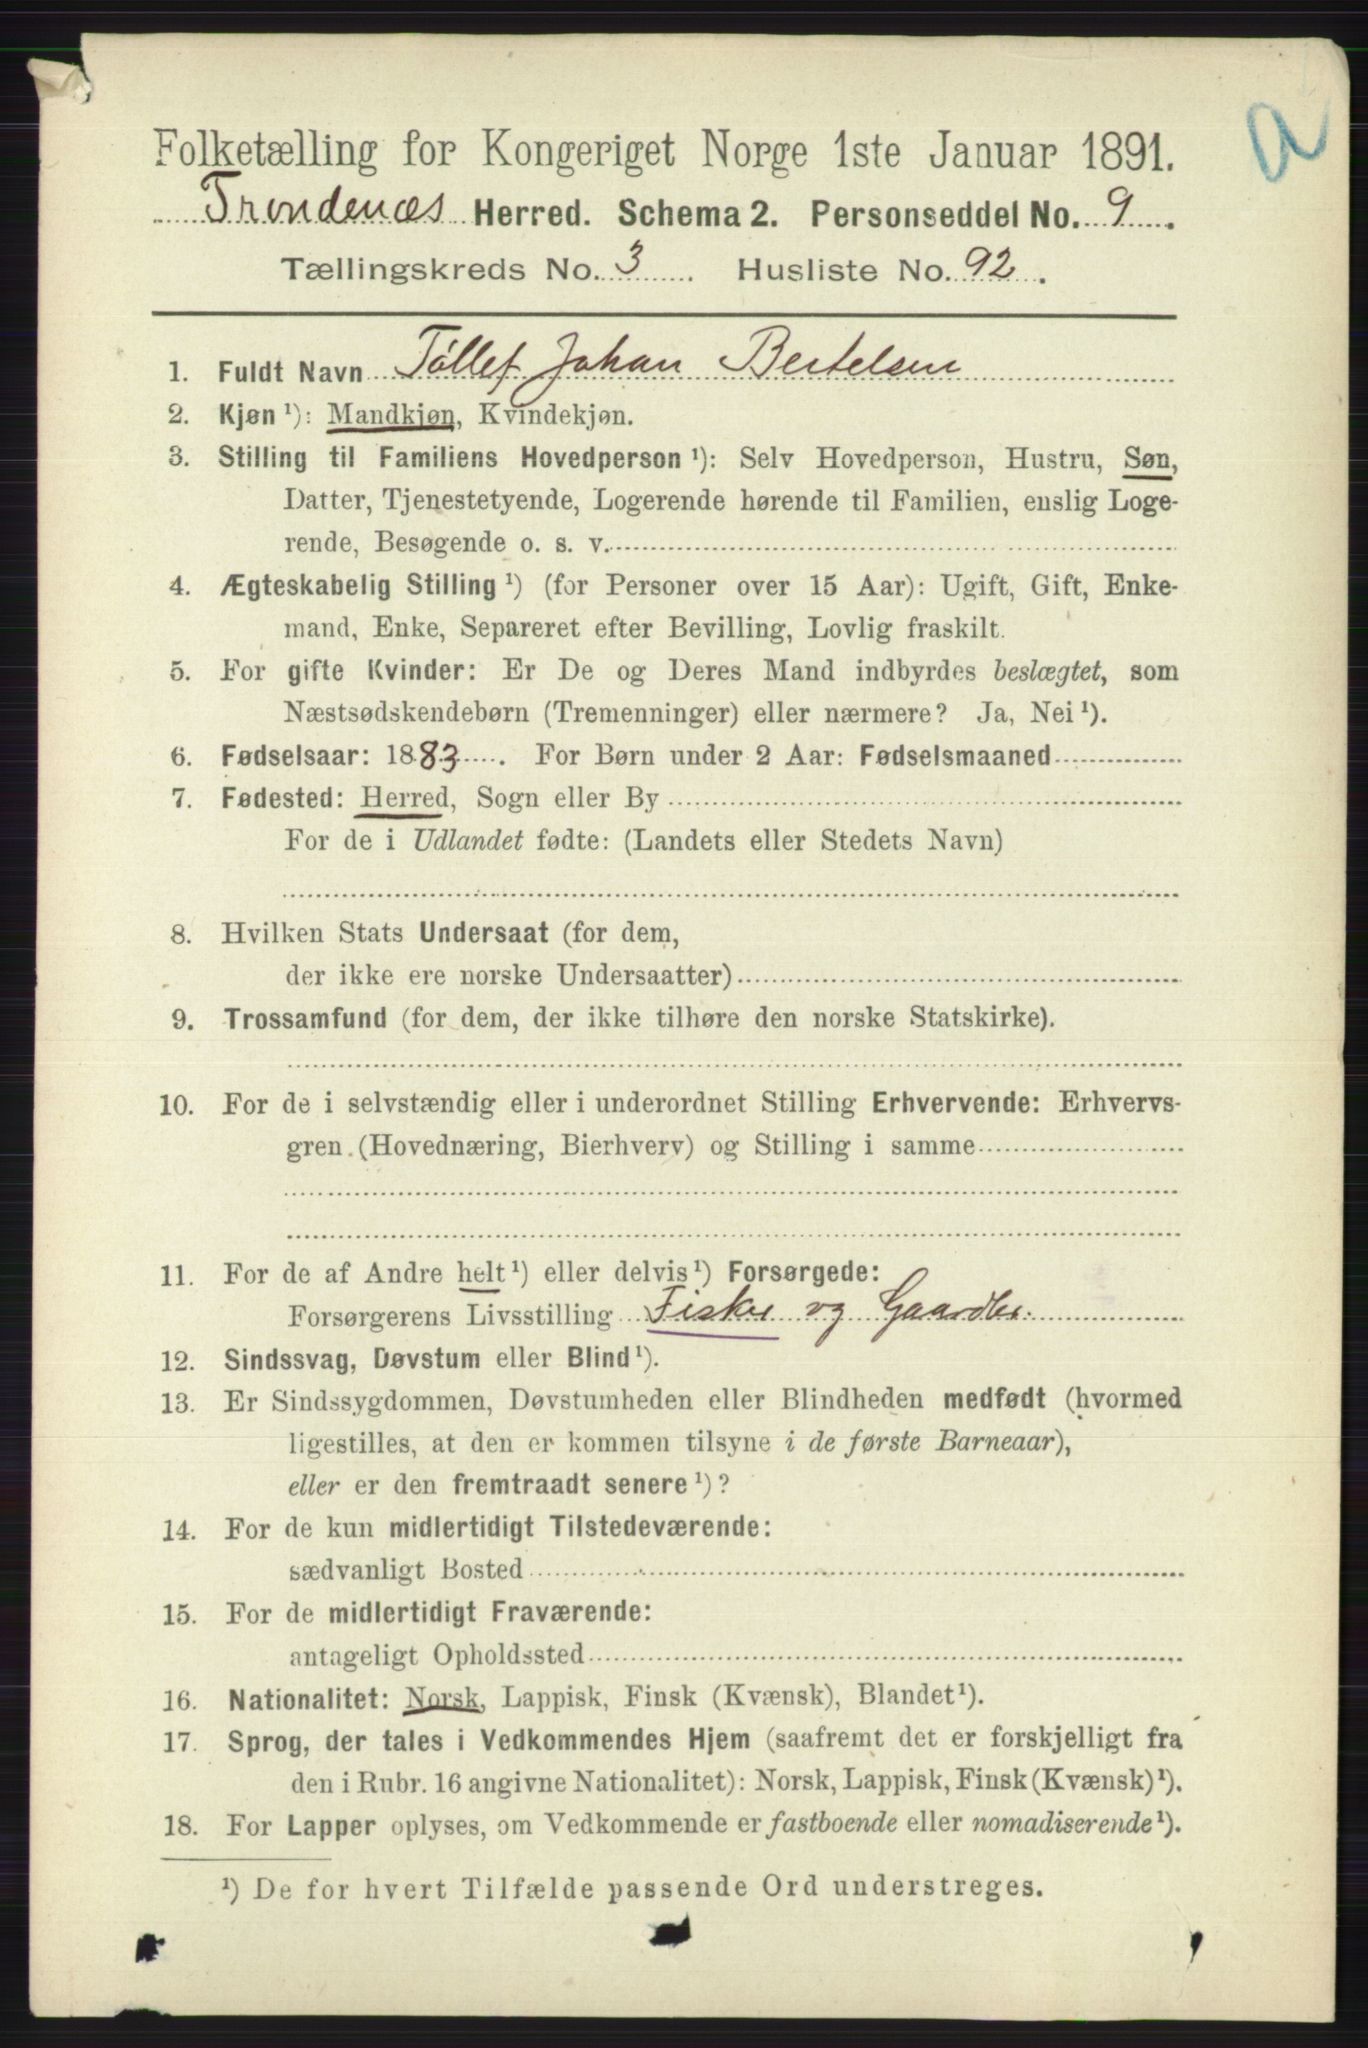 a
Folketælling for Kongeriget Norge 1ste Januar 1891.
Trondenæs Herred. Schema 2. Personseddel No. 9.
Tællingskreds No. 3 Husliste No. 92.
1. Fuldt Navn Tollef Johan Bertelsen
2. Kjøn ¹): Mandkjøn, Kvindekjøn.
3. Stilling til Familiens Hovedperson ¹): Selv Hovedperson, Hustru, Søn,
Datter, Tjenestetyende, Logerende hørende til Familien, enslig Loge-
rende, Besøgende o. s. v.
4. Ægteskabelig Stilling ¹) (for Personer over 15 Aar): Ugift, Gift, Enke-
mand, Enke, Separeret efter Bevilling, Lovlig fraskilt.
5. For gifte Kvinder: Er De og Deres Mand indbyrdes beslægtet, som
Næstsødskendebørn (Tremenninger) eller nærmere? Ja, Nei ¹).
6. Fødselsaar: 1883. For Børn under 2 Aar: Fødselsmaaned
7. Fødested: Herred, Sogn eller By
For de i Udlandet fødte: (Landets eller Stedets Navn)
8. Hvilken Stats Undersaat (for dem,
der ikke ere norske Undersaatter)
9. Trossamfund (for dem, der ikke tilhøre den norske Statskirke).
10. For de i selvstændig eller i underordnet Stilling Erhvervende: Erhvervs-
gren (Hovednæring, Bierhverv) og Stilling i samme
11. For de af Andre helt ¹) eller delvis ¹) Forsørgede:
Forsørgerens Livsstilling Fisker og Gaardbr.
12. Sindssvag, Døvstum eller Blind ¹).
13. Er Sindssygdommen, Døvstumheden eller Blindheden medfødt (hvormed
ligestilles, at den er kommen tilsyne i de første Barneaar),
eller er den fremtraadt senere ¹)?
14. For de kun midlertidigt Tilstedeværende:
sædvanligt Bosted
15. For de midlertidigt Fraværende:
antageligt Opholdssted
16. Nationalitet: Norsk, Lappisk, Finsk (Kvænsk), Blandet ¹).
17. Sprog, der tales i Vedkommendes Hjem (saafremt det er forskjelligt fra
den i Rubr. 16 angivne Nationalitet): Norsk, Lappisk, Finsk (Kvænsk) ¹).
18. For Lapper oplyses, om Vedkommende er fastboende eller nomadiserende ¹).
¹) De for hvert Tilfælde passende Ord understreges.